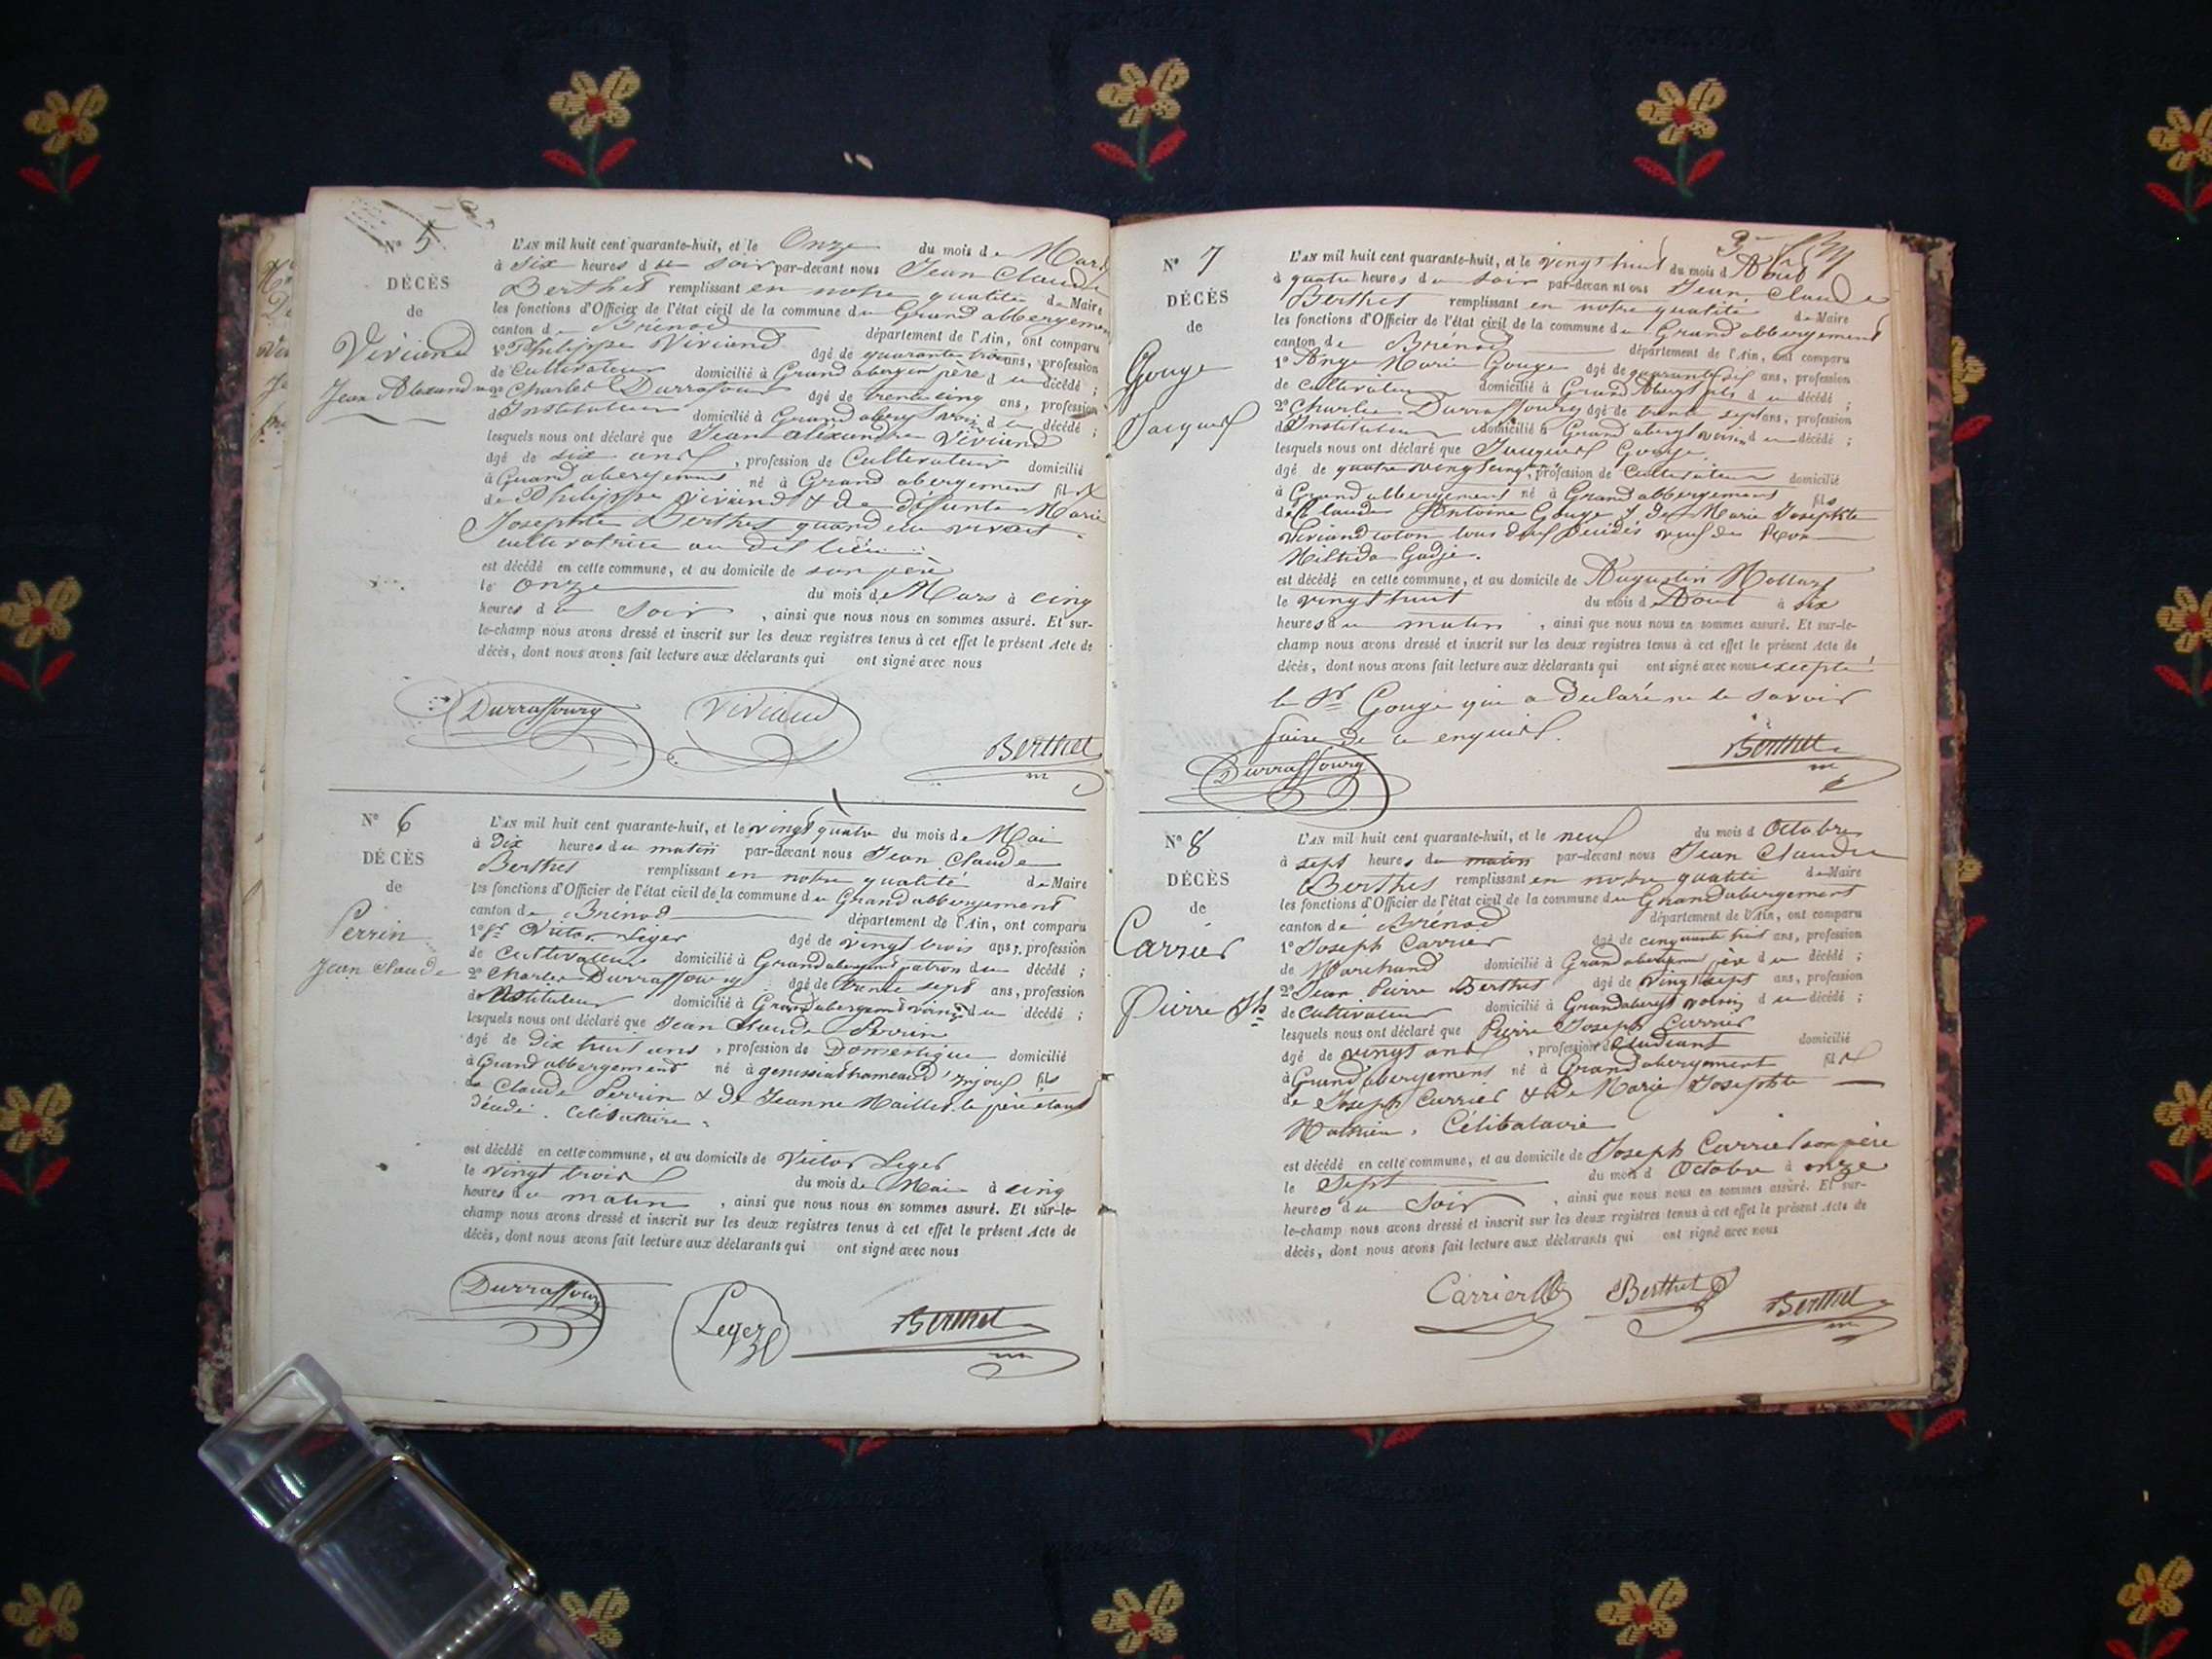 Nº 5
DÉCÈS
de
Viviand
Jean Alexandre
L'AN mil huit cent quarante-huit, et le Onze du mois de Mars
à Six heures du soir par-devant nous Jean Claude
Berthet remplissant en notre qualité de Maire
les fonctions d'Officier de l'état civil de la commune du Grand abbergement
canton de Brénod département de l'Ain, ont comparu
1º Philippe Viviand âgé de quarante trois ans, profession
de Cultivateur domicilié à Grand abergem père du décédé ;
2º Charles Durrafour âgé de trente cinq ans, profession
d'Instituteur domicilié à Grand aberg voisin du décédé ;
lesquels nous ont déclaré que Jean alexandre Viviand
âgé de six ans, profession de Cultivateur domicilié
à Grand abergement né à Grand abergement fils
de Philippe Viviand & de défunte Marie
Josephte Berthet quand elle vivait
cultivatrice au dit lieu
est décédé en cette commune, et au domicile de son père
le onze du mois de Mars à cinq
heures du Soir, ainsi que nous nous en sommes assuré. Et sur-
le-champ nous avons dressé et inscrit sur les deux registres tenus à cet effet le présent Acte de
décès, dont nous avons fait lecture aux déclarants qui ont signé avec nous
Durraffourg Viviand
Berthet
Nº 6
DÉCÈS
de
Perrin
Jean Claude
L'AN mil huit cent quarante-huit, et le vingt quatre du mois de Mai
à Dix heures du matin par-devant nous Jean Claude
Berthet remplissant en notre qualité de Maire
les fonctions d'Officier de l'état civil de la commune du Grand abbergement
canton de Brénod département de l'Ain, ont comparu
1º Sr Victor Léger âgé de vingt trois ans, profession
de Cultivateur domicilié à Grand abergement patron du décédé ;
2º Charles Durraffourg âgé de trente sept ans, profession
d'Instituteur domicilié à Grand abergement voisin du décédé ;
lesquels nous ont déclaré que Jean Claude Perrin
âgé de Dix huit ans, profession de Domestique domicilié
à Grand abbergement né à genissiat hameau d'injoux fils
de Claude Perrin & de Jeanne Maillet le père étant
décédé. Célibataire.
est décédé en cette commune, et au domicile de Victor Leger
le vingt trois du mois de Mai à cinq
heures du matin, ainsi que nous nous en sommes assuré. Et sur-le-
champ nous avons dressé et inscrit sur les deux registres tenus à cet effet le présent Acte de
décès, dont nous avons fait lecture aux déclarants qui ont signé avec nous
Durraffourg
Leger Berthet
Nº 7
DÉCÈS
de
Gouge
Jacques
L'AN mil huit cent quarante-huit, et le vingt huit du mois d'Août
à quatre heures du soir par-devant nous Jean Claude
Berthet remplissant en notre qualité de Maire
les fonctions d'Officier de l'état civil de la commune du Grand abbergement
canton de Brénod département de l'Ain, ont comparu
1º Ange Marie Gouge âgé de quarante six ans, profession
de cultivateur domicilié à Grand Abergt fils du décédé ;
2º Charles Durraffourg âgé de trente sept ans, profession
d'Instituteur domicilié à Grand abergt voisin du décédé ;
lesquels nous ont déclaré que Jacques Gouge
âgé de quatre vingt cinq, profession de Cultivateur domicilié
à Grand abbergement né à Grand abbergement fils
de Claude Antoine Gouge & de Marie Josephte
Viviand coton tous deux décédés veuf de
Gadje.
est décédé en cette commune, et au domicile de Augustin
le vingt huit du mois d'Août à six
heures du matin, ainsi que nous nous en sommes assuré. Et sur-le-
champ nous avons dressé et inscrit sur les deux registres tenus à cet effet le présent Acte de
décès, dont nous avons fait lecture aux déclarants qui ont signé avec nous excepté
le Sr Gouge qui a déclaré ne le savoir
faire de ce enquis.
Durraffourg Berthet
Nº 8
DÉCÈS
de
Carrier
Pierre Jh
L'AN mil huit cent quarante-huit, et le neuf du mois d'Octobre
à sept heures du matin par-devant nous Jean Claude
Berthet remplissant en notre qualité de Maire
les fonctions d'Officier de l'état civil de la commune du Grand abergement
canton de Brénod département de l'Ain, ont comparu
1º Joseph Carrier âgé de cinquante huit ans, profession
de Marchand domicilié à Grand abergem père du décédé ;
2º Jean Pierre Berthet âgé de vingt sept ans, profession
de cultivateur domicilié à Grand abergt voisin du décédé ;
lesquels nous ont déclaré que Pierre Joseph Carrier
âgé de vingt ans, profession d'étudiant domicilié
à Grand abergement né à Grand abergement fils
de Joseph Carrier & de Marie Josephte
Mathieu, Célibataire
est décédé en cette commune, et au domicile de Joseph Carrier son père
le Sept du mois d'Octobre à onze
heures du Soir, ainsi que nous nous en sommes assuré. Et sur-
le-champ nous avons dressé et inscrit sur les deux registres tenus à cet effet le présent Acte de
décès, dont nous avons fait lecture aux déclarants qui ont signé avec nous
Carrier Berthet Berthet